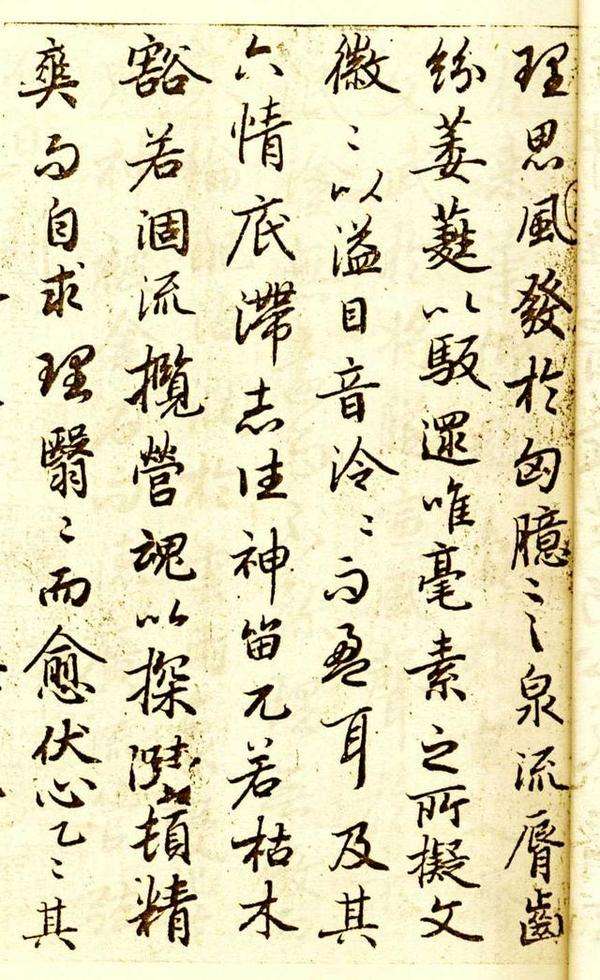 理思風發於匈臆言泉流脣齒
紛萎蕤以馺遝唯毫素之所擬文
徽〻以溢目音泠〻而盈耳及其
六情底滯志往神留兀若枯木
豁若涸流攬營魂以探賾頓精
爽而自求理翳〻而愈伏心乙〻其